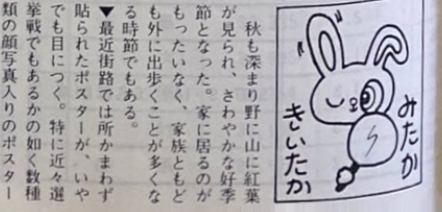 みたか
きいたか
秋も深まり野に山に紅葉
が見られ、さわやかな好季
節となった。家に居るのが
もったいなく、家族ともど
も外に出歩くことが多くな
る時節でもある。
▼最近街路では所かまわず
貼られたポスターが、いや
でも目につく。特に近々選
挙戦でもあるかの如く数種
類の顔写真入りのポスター